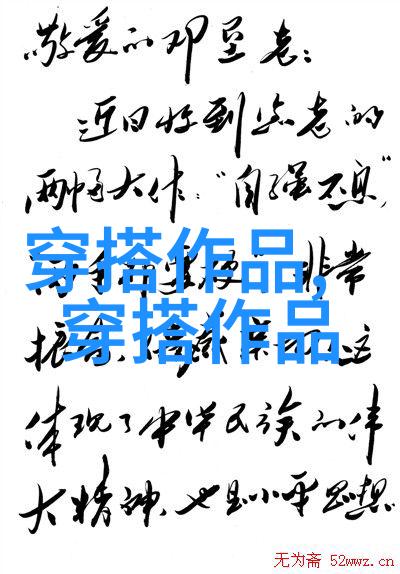 敬爱的邓垦老:
近日收到您老的
两幅大作:“自强不息”
穿搭作品,
非常
穿搭作品
振奋
这
体现了中华民族的伟
大精神,也是小平思想
无为斋 52wwz.cn